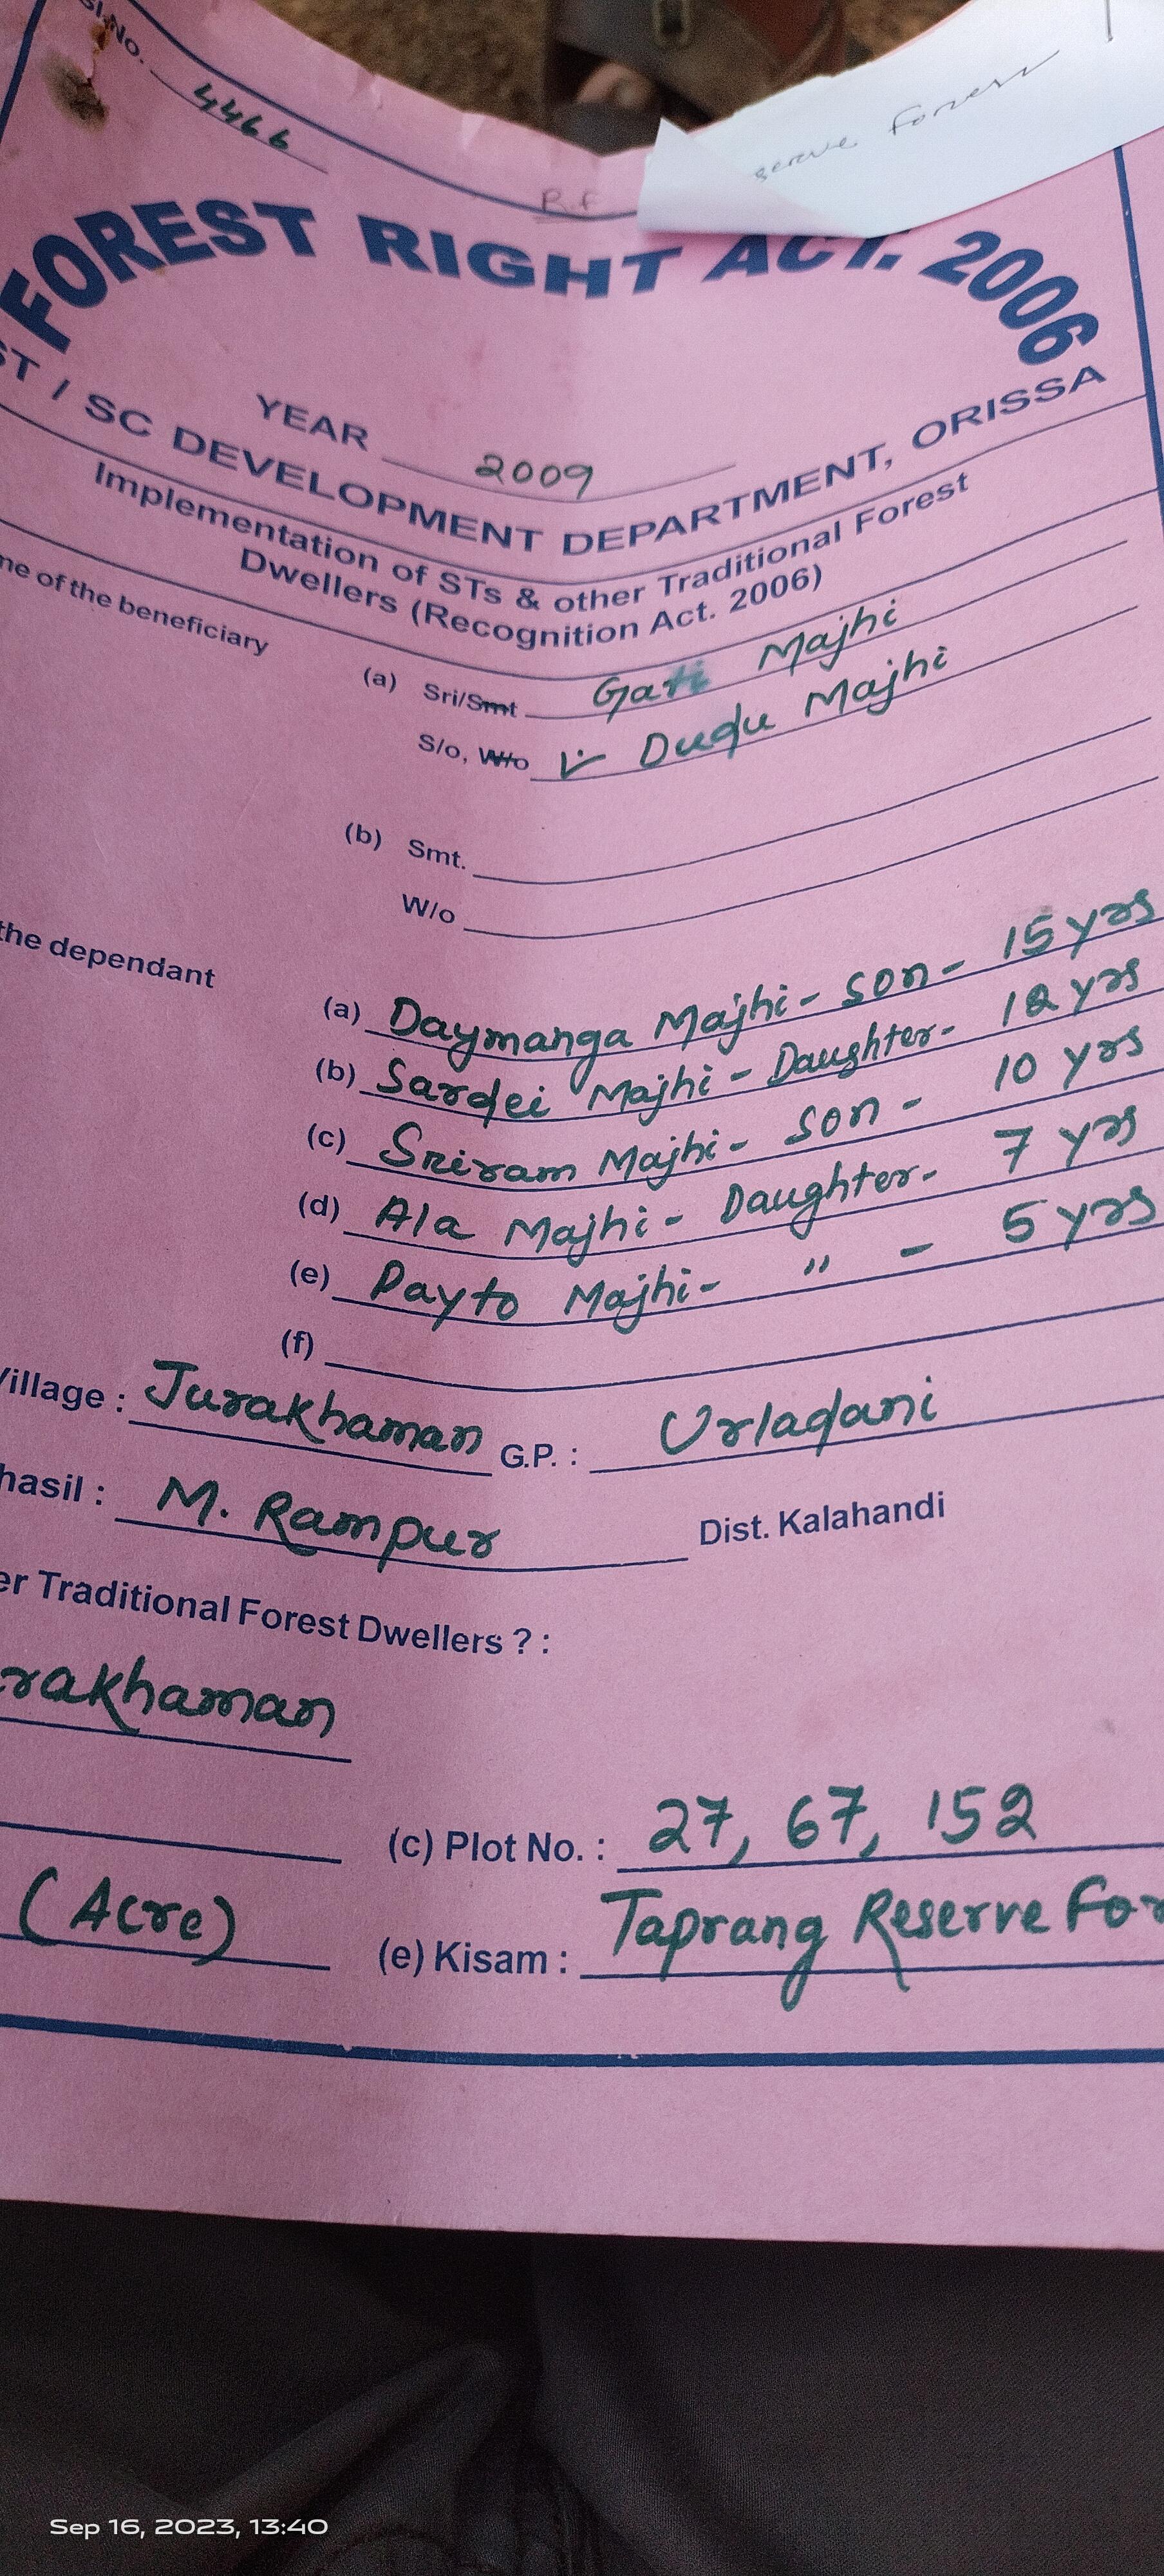 Sl. No. 4466
serve Forest
R.F
FOREST RIGHT ACT. 2006
YEAR 2009
ST / SC DEVELOPMENT DEPARTMENT, ORISSA
Implementation of STs & other Traditional Forest
Dwellers (Recognition Act. 2006)
me of the beneficiary
(a) Sri/Smt Gati Majhi
S/o, W/o L Dudu Majhi
(b) Smt.
W/o
the dependant
(a) Daymanga Majhi - son - 15 yrs
(b) Sardei Majhi - Daughter - 12 yrs
(c) Sriram Majhi - son - 10 yrs
(d) Ala Majhi - Daughter - 7 yrs
(e) Payto Majhi - " - 5 yrs
(f)
Village : Jurakhaman G.P. : Urladani
hasil : M. Rampur Dist. Kalahandi
er Traditional Forest Dwellers ? :
rakhaman
(c) Plot No. : 27, 67, 152
(Acre) (e) Kisam : Taprang Reserve For
Sep 16, 2023, 13:40